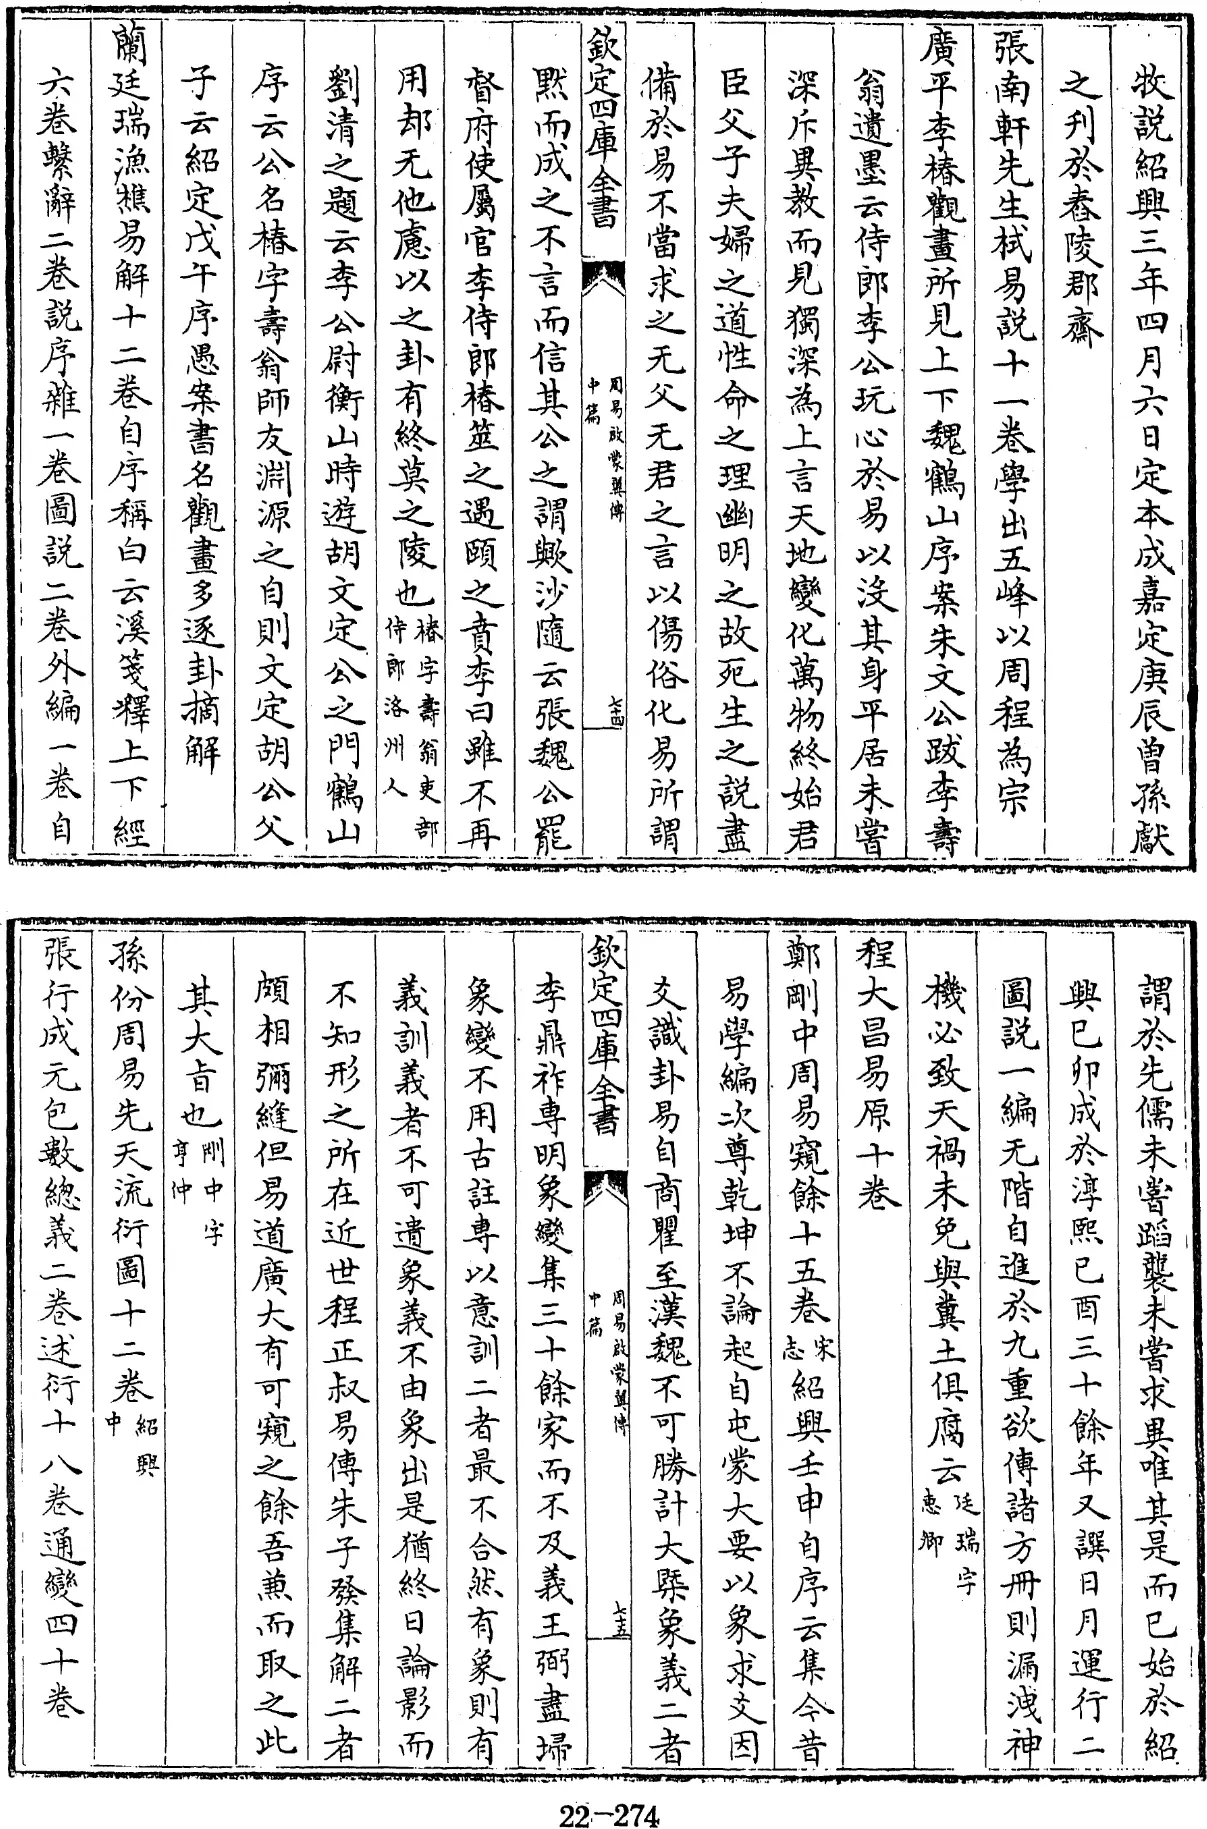 牧説紹興三年四月六日定本成嘉定庚辰曾孫獻
之刋於舂陵郡齋
張南軒先生栻易説十一卷學出五峰以周程為宗
廣平李椿觀畫所見上下魏鶴山序案朱文公跋李壽
翁遺墨云侍郎李公玩心於易以沒其身平居未嘗
深斥異教而見獨深為上言天地變化萬物終始君
臣父子夫婦之道性命之理幽明之故死生之説盡
備於易不當求之无父无君之言以傷俗化易所謂
欽定四庫全書
周易啟蒙翼傳
中篇
七十四
黙而成之不言而信其公之謂歟沙隨云張魏公罷
督府使屬官李侍郎椿筮之遇頤之賁李曰雖不再
用却无他慮以之卦有終莫之陵也椿字壽翁吏部
侍郎洛州人
劉清之題云李公尉衡山時遊胡文定公之門鶴山
序云公名椿字壽翁師友淵源之自則文定胡公父
子云紹定戊午序愚案書名觀畫多逐卦摘解
蘭廷瑞漁樵易解十二卷自序稱白云溪箋釋上下經
六卷繫辭二卷説序雜一卷圖説二卷外編一卷自
謂於先儒未嘗蹈襲未嘗求異唯其是而已始於紹
興己卯成於淳熙己酉三十餘年又譔日月運行二
圖説一編无階自進於九重欲傳諸方冊則漏洩神
機必致天禍未免與糞土俱腐云廷瑞字
惠卿
程大昌易原十卷
鄭剛中周易窺餘十五卷宋
志紹興壬申自序云集今昔
易學編次尊乾坤不論起自屯蒙大要以象求爻因
爻識卦易自商瞿至漢魏不可勝計大槩象義二者
欽定四庫全書
周易啟蒙翼傳
中篇
七十五
李鼎祚專明象變集三十餘家而不及義王弼盡掃
象變不用古註專以意訓二者最不合然有象則有
義訓義者不可遺象義不由象出是猶終日論影而
不知形之所在近世程正叔易傳朱子發集解二者
頗相彌縫但易道廣大有可窺之餘吾兼而取之此
其大旨也剛中字
亨仲
孫份周易先天流衍圖十二卷紹興
中
張行成元包數總義二卷述衍十八卷通變四十卷
22-274